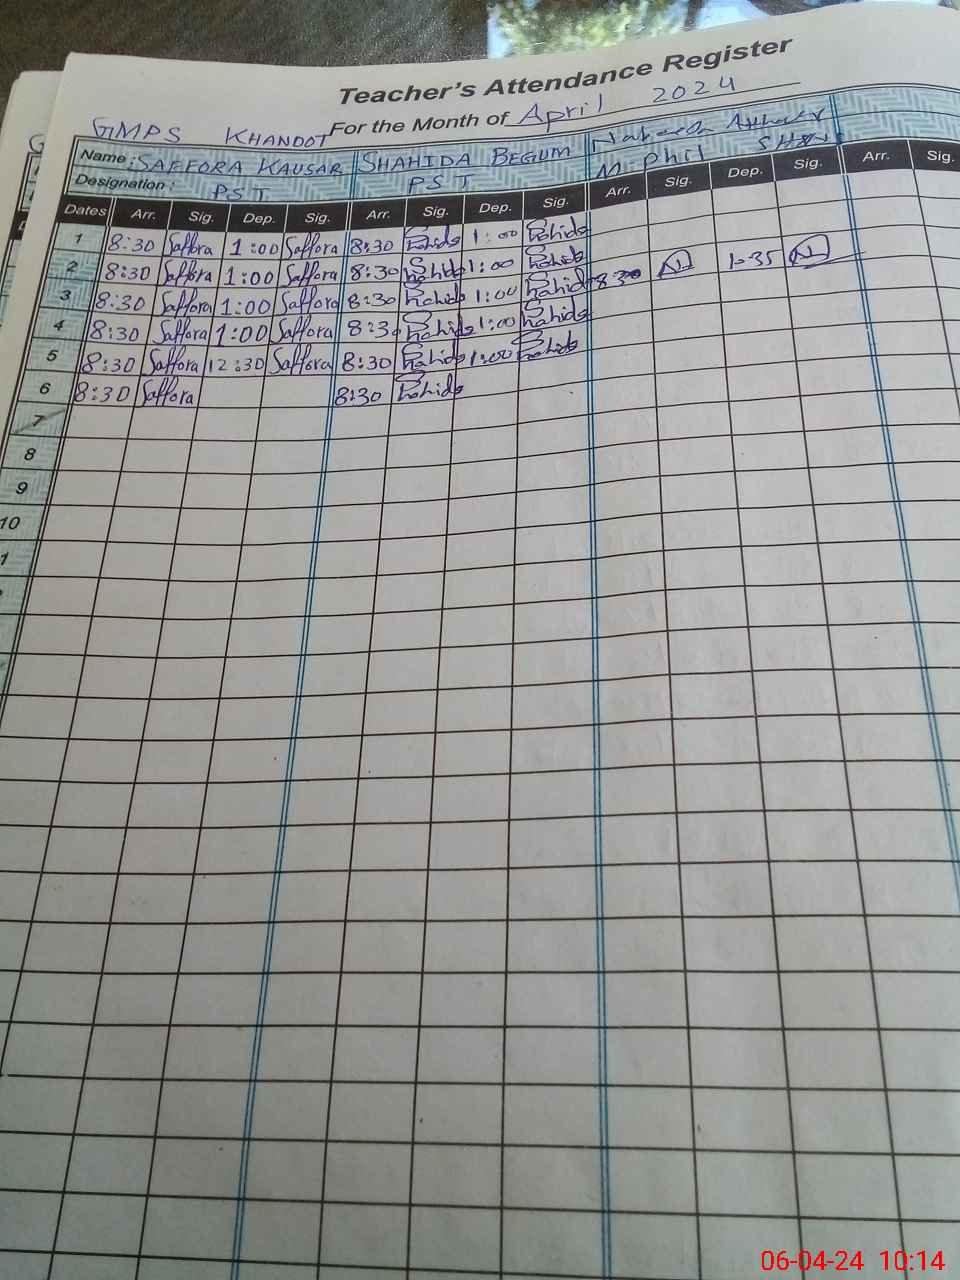 Teacher's Attendance Register
GMPS KHANDOT For the Month of April 2024
Name: SAFFORA KAUSAR SHAHIDA BEGUM
Designation: PST PST M.Phil
Dates Arr. Sig. Dep. Sig. Arr. Sig. Dep. Sig. Arr. Sig. Dep. Sig. Arr. Sig.
1 8:30 Saffora 1:00 Saffora 8:30 1:00
2 8:30 Saffora 1:00 Saffora 8:30 1:00 8:30 1-35
3 8:30 Saffora 1:00 Saffora 8:30 1:00
4 8:30 Saffora 1:00 Saffora 8:30 1:00
5 8:30 Saffora 12:30 Saffora 8:30 1:00
6 8:30 Saffora 8:30
7
8
9
10
06-04-24 10:14